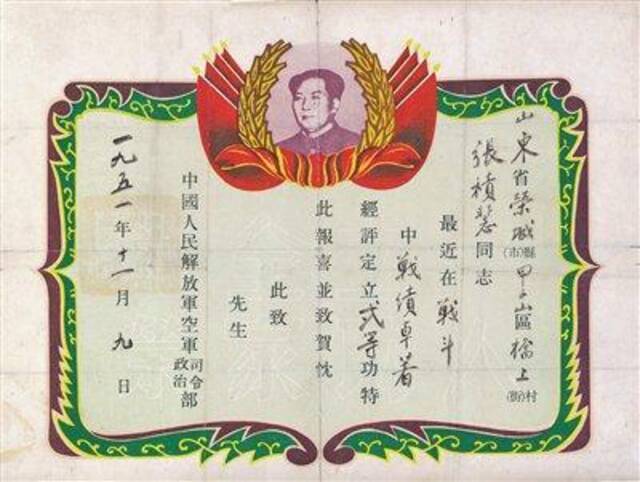 山東省榮城縣(市)甲子山區橋上村(街)
張積慧同志
最近在戰斗
中戰績卓著
經評定立弍等功特
此報喜並致賀忱
此致
先生
中國人民解放軍空軍司令政治部
一九五一年十一月九日